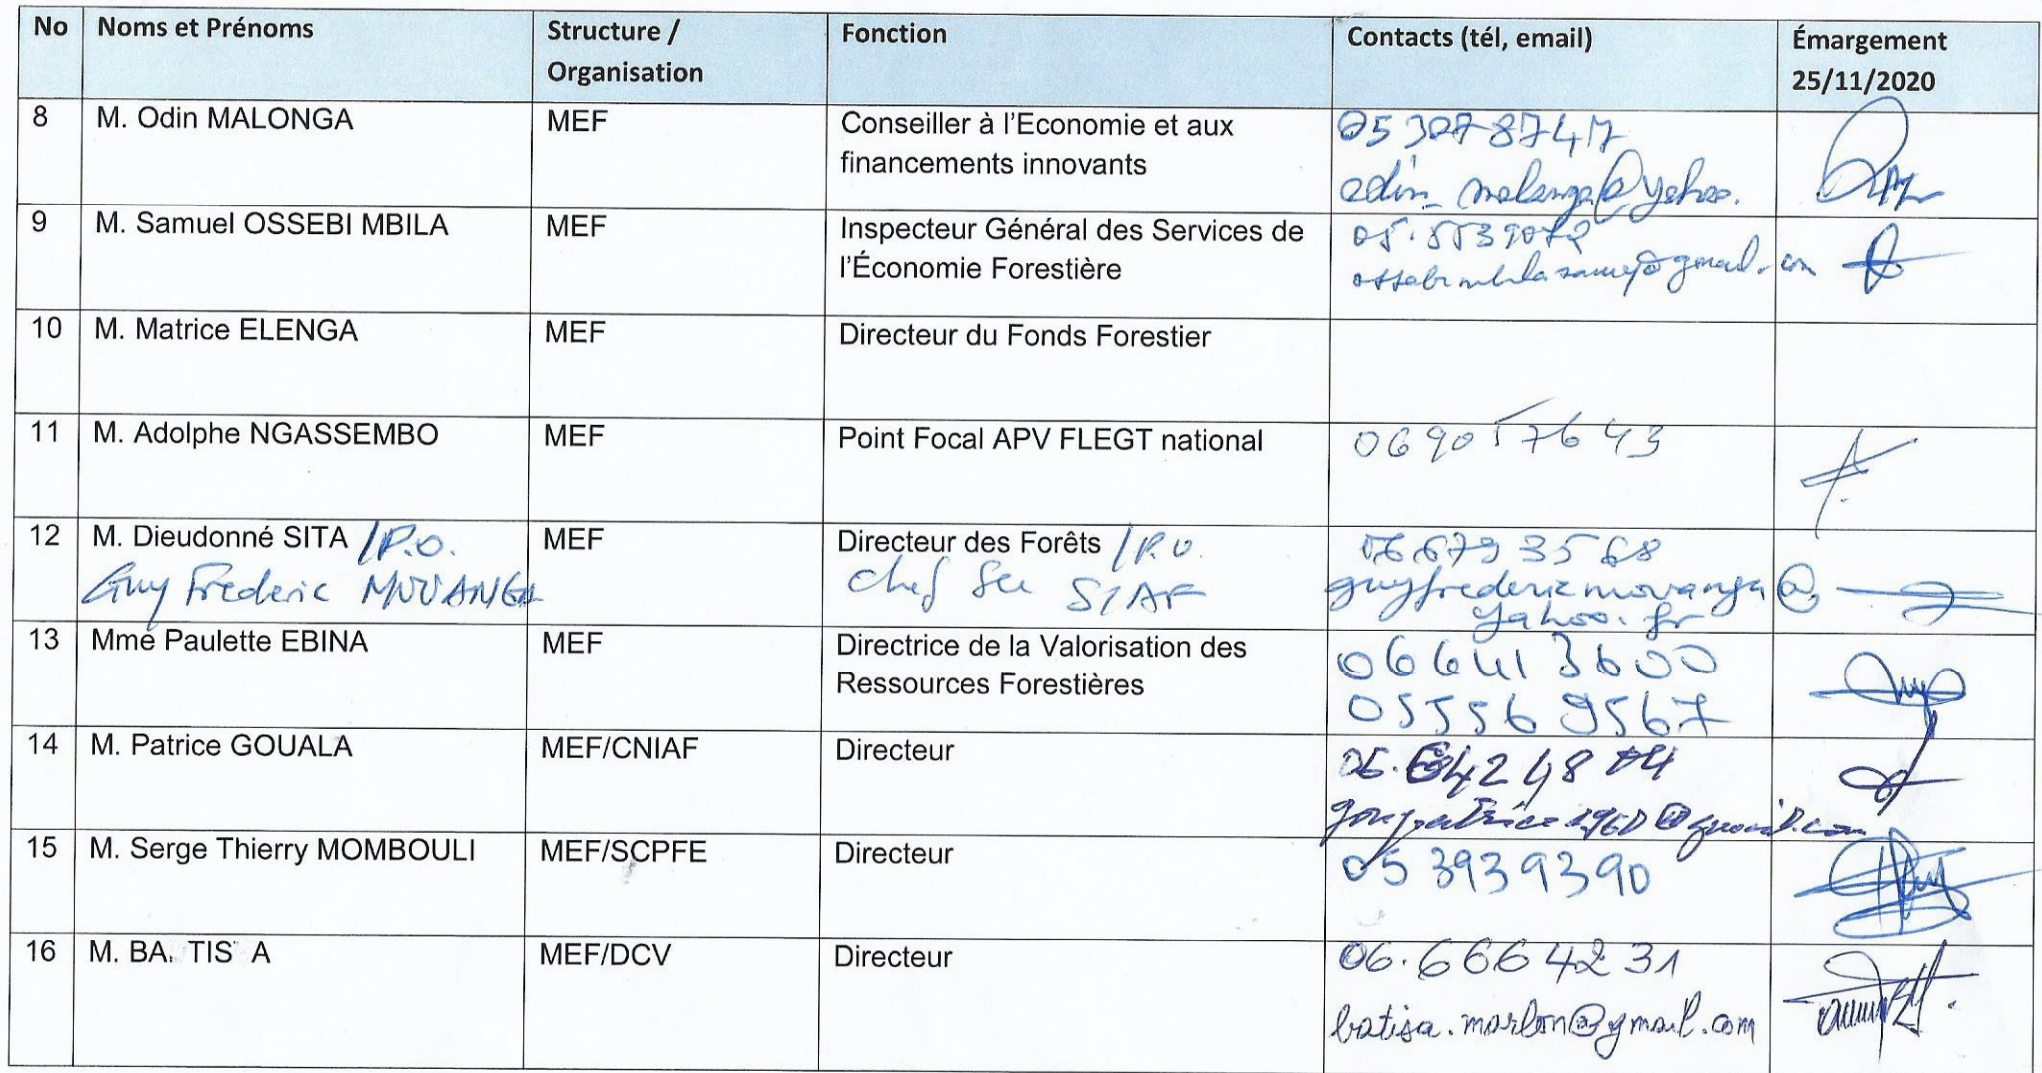 No Noms et Prénoms Structure / Organisation Fonction Contacts (tél, email) Émargement 25/11/2020
8 M. Odin MALONGA MEF Conseiller à l'Economie et aux financements innovants
odin_malonga@yahoo.
9 M. Samuel OSSEBI MBILA MEF Inspecteur Général des Services de l'Économie Forestière
10 M. Matrice ELENGA MEF Directeur du Fonds Forestier
11 M. Adolphe NGASSEMBO MEF Point Focal APV FLEGT national 069057643
12 M. Dieudonné SITA /P.O. MEF Directeur des Forêts /P.O. 066793568
Guy Frederic MOVANGA Chef SIAF guyfredericmovanga@
yahoo.fr
13 Mme Paulette EBINA MEF Directrice de la Valorisation des Ressources Forestières 066413600
055569567
14 M. Patrice GOUALA MEF/CNIAF Directeur
goupatrice1960@gmail.com
15 M. Serge Thierry MOMBOULI MEF/SCPFE Directeur 053939390
16 M. BA TIS A MEF/DCV Directeur 06.6664231
batisa.marlon@gmail.com